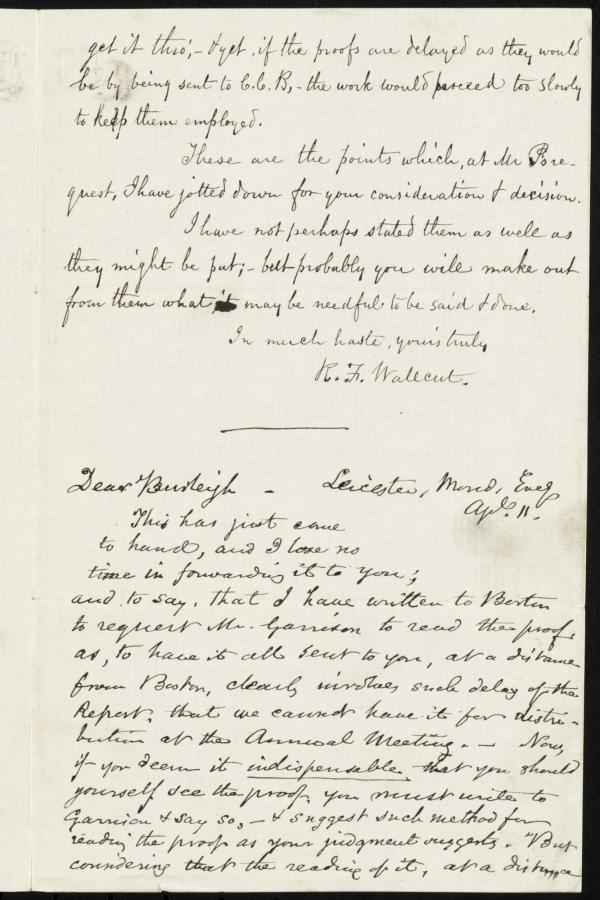 get it thro',- & yet, if the proofs are delayed as they would
be by being sent to C.C.B,- the work would proceed too slowly
to keep them employed.
These are the points which, at Mr P's re-
quest, I have jotted down for your consideration & decision.
I have not perhaps stated them as well as
they might be put;- but probably you will make out
from them what may be needful to be said & done.
In much haste, yours truly
R. F. Wallcut.
Dear Burleigh - Leicester, Mond, Eveg
Apl. 11.
This has just come
to hand, and I lose no
time in forwarding it to you;
and to say, that I have written to Boston
to request Mr. Garrison to read the proof,
as, to have it all sent to you, at a distance
from Boston, clearly involves such delay of the
Report, that we cannot have it for distri-
bution at the Annual Meeting. - Now,
if you deem it indispensable that you should
yourself see the proof, you must write to
Garrison & say so, - & suggest such method for
reading the proof as your judgment suggests. But
considering that the reading of it, at a distance